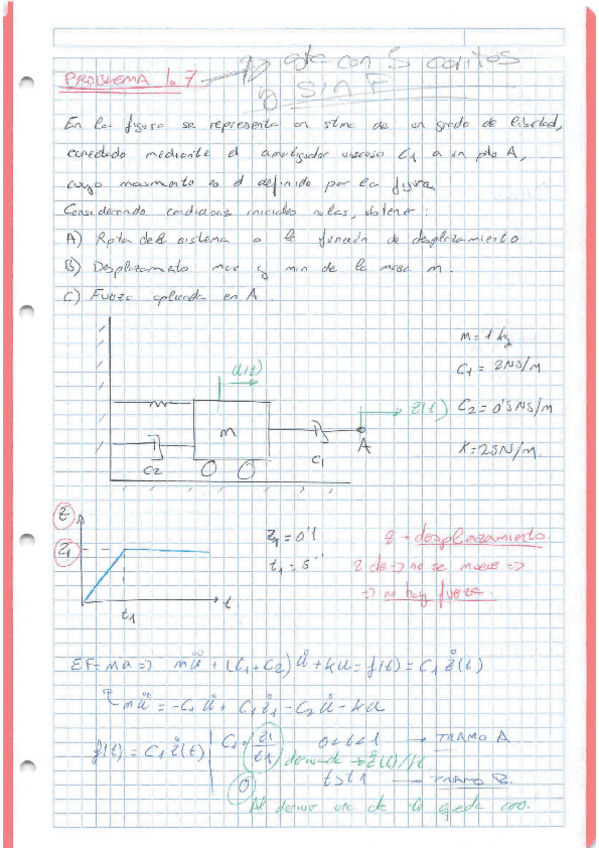 PROBLEMA 1.7 → este con 5 carritos
y sin F
En la figura se representa un stma de un grado de libertad,
conectado mediante el amortiguador viscoso C1 a un pto A,
cuyo movimiento es el definido por la figura.
Considerando condiciones iniciales nulas, obtener:
A) Rpta del sistema a la función de desplazamiento.
B) Desplazamiento max y min de la masa m.
C) Fuerza aplicada en A.
m = 1 kg
u(t)
C1 = 2NS/m
z(t)
C2 = 0'5NS/m
m
A
K = 25N/m.
C2
C1
z
z1
z1 = 0'1
t1 = 5''
t1
t
z → desplazamiento.
z cte => no se mueve =>
=> no hay fuerza.
ΣF = ma => mü + (C1 + C2) u̇ + ku = f(t) = C1 ż(t)
mü = -C1 u̇ + C1 ż1 - C2 u̇ - ku
f(t) = C1 ż(t)
C1 · z1/t1
0<t<1 → TRAMO A
derivada
0
t>t1 → TRAMO B.
Al derivar una cte la queda cero.